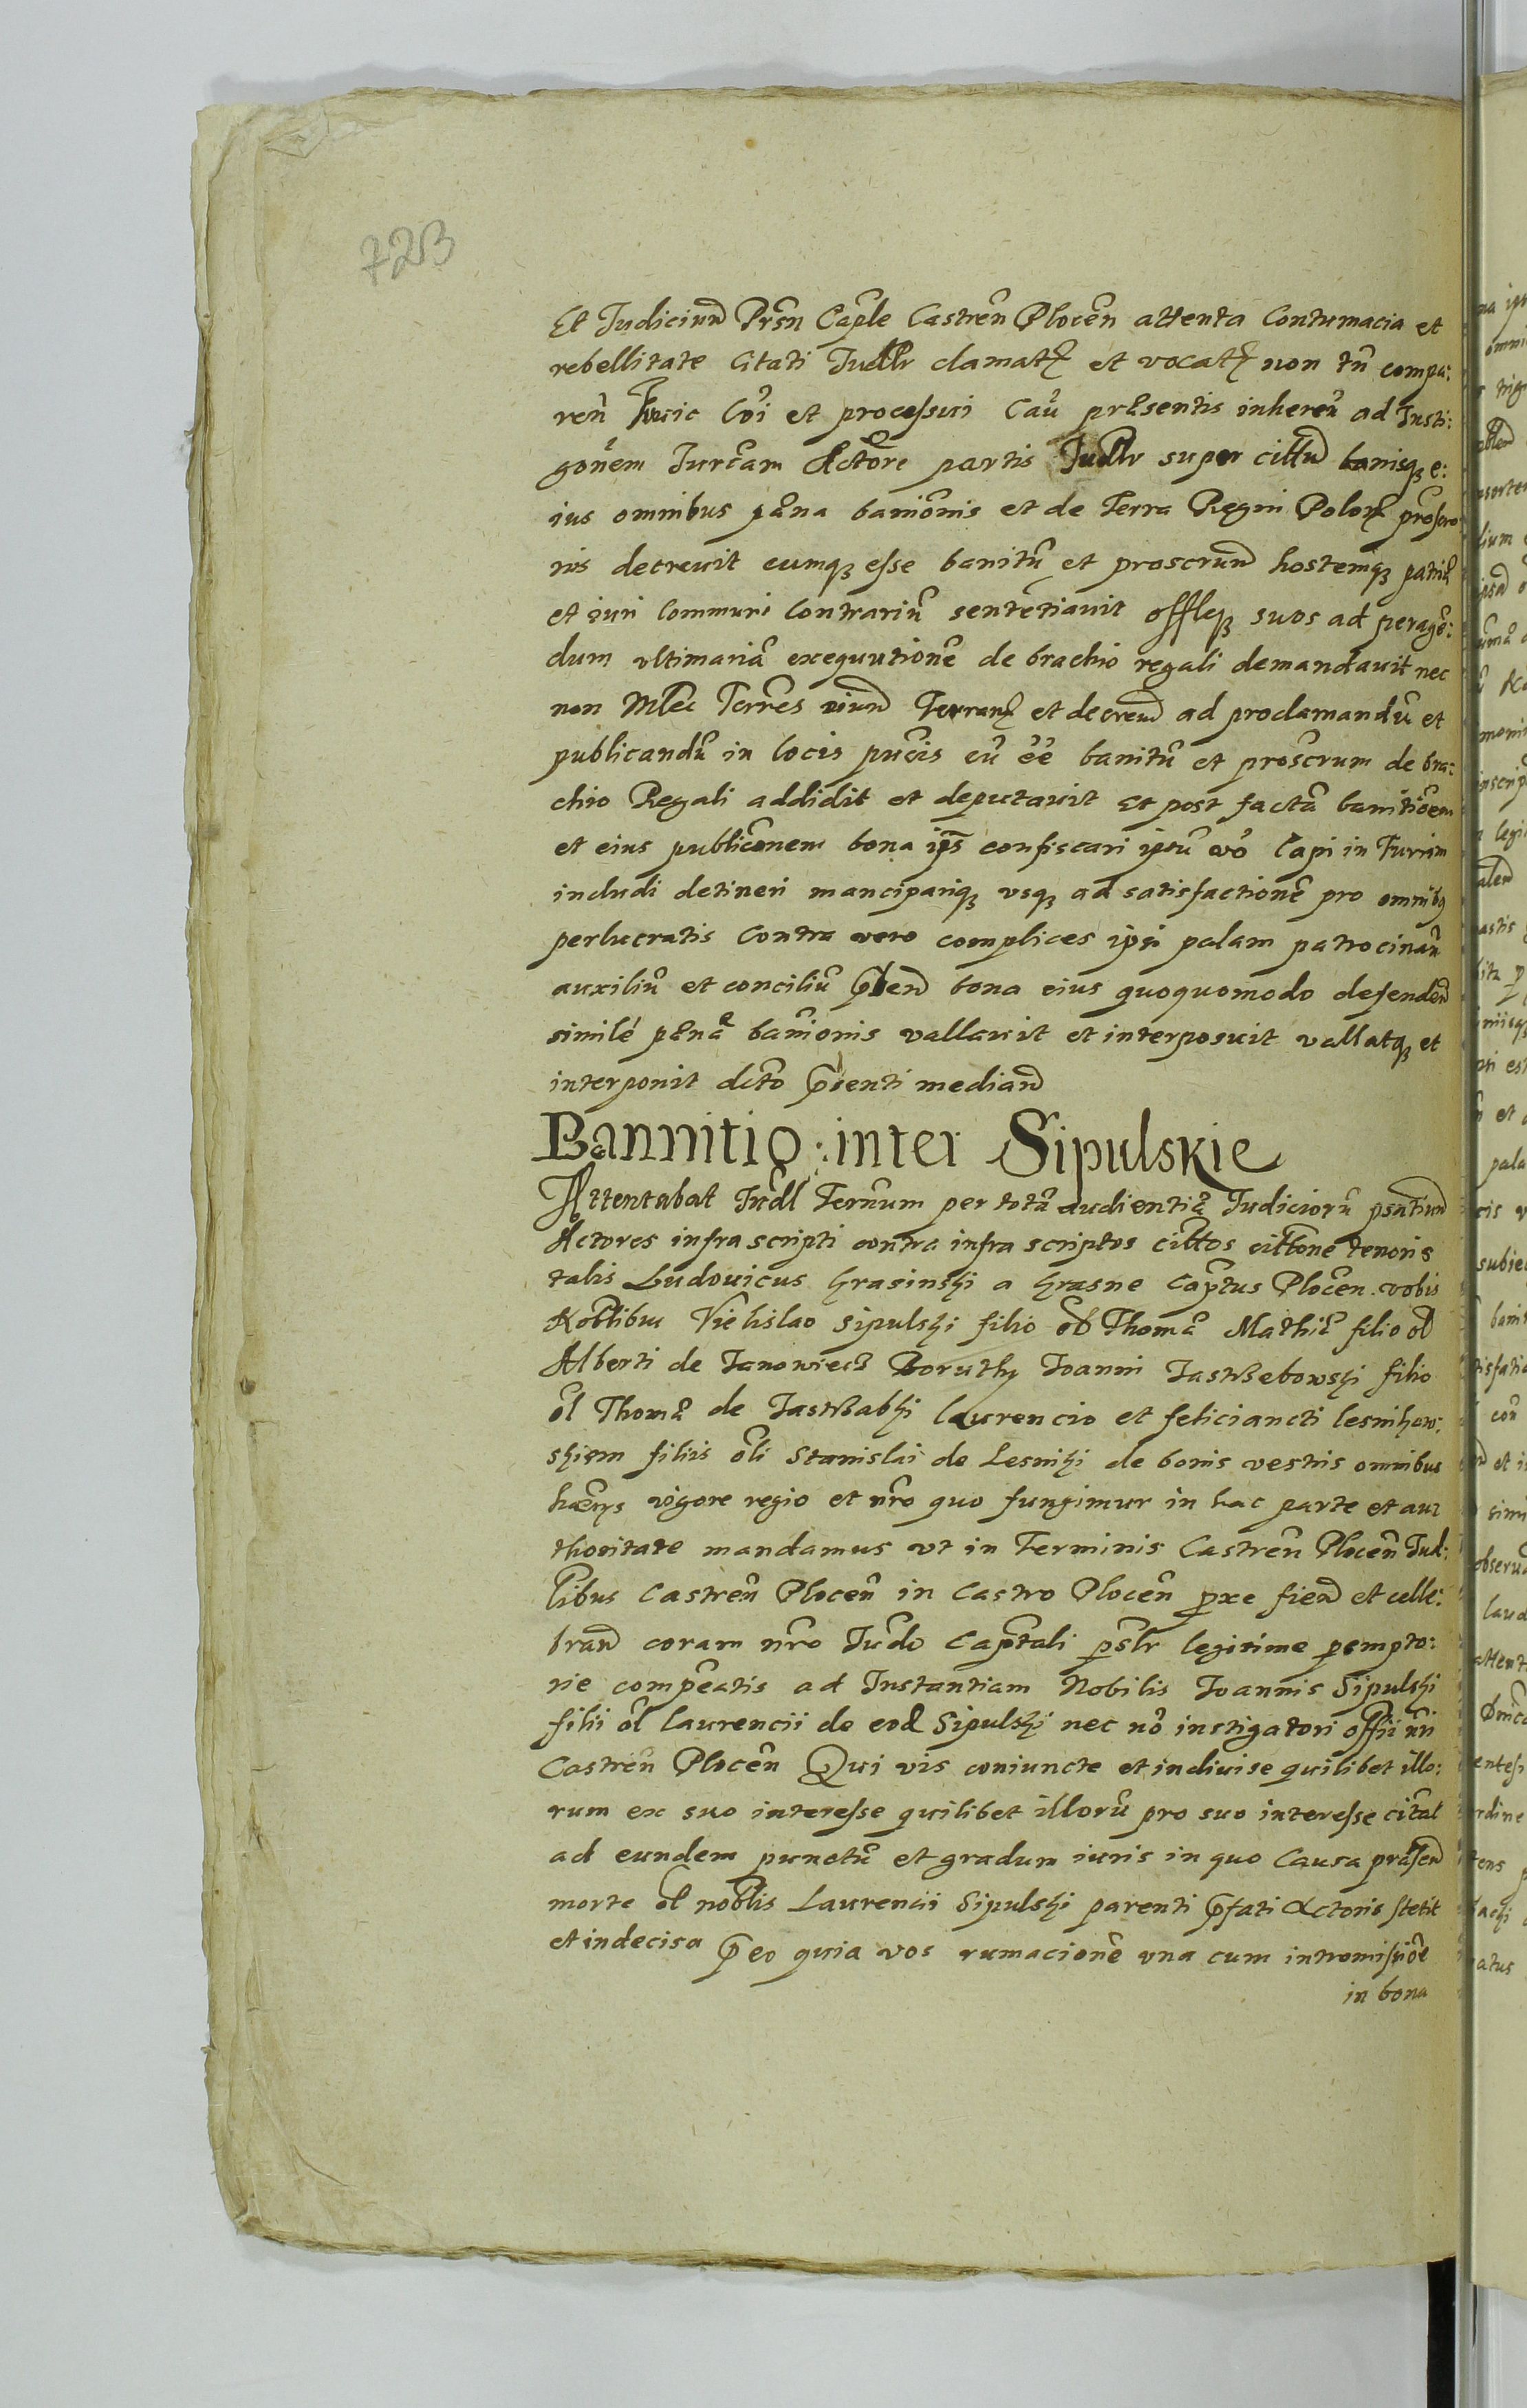 723
Et Judicium Prsn Caple Castren Plocen attenta Contumacia et
rebellitate Citati Judlr clamat et vocat non tn compa:
ren huic loi et processui Cau præsentis inheren ad Insti:
gonem Juream Actore partis Judlr super cittum bonisq e:
ius omnibus pæna banionis et de Terra Regni Polon proscrip
nis decrevit eumq esse banitũ et proscrum hostemq patriæ
et iuri communi Contrariũ sentẽtiavit offleq suos ad peragẽ:
dum ultimariã exequutionẽ de brachio regali demandavit nec
non Terres et decrevit ad proclamandũ et
publicandũ in locis pucis eũ ẽe banitũ et proscrum de bra:
chio Regali addidit et deputavit Et post factã banitiõem
et eius publiconem bona ips confiscari ipsũ vo Capi in Turrim
includi detineri manciparique usq ad satisfactionẽ pro omnibq
perlucratis Contra vero complices ipsi palam patrocinan
auxiliũ et conciliũ pben bona eius quoquomodo defenden
simile pænæ banionis vallavit et interposuit vallatq et
interponit dcto psenti median
Bannitio inter Sipulskie
Attentabat Judl Terum per totã audientiã Judiciorũ psntium
Actores infra scripti contra infra scriptos cittos cittone tenoris
talis Ludovicus Krasinski a Krasne Captus Plocen vobis
Noblibus Vie lislao Sipulski filio ol Thomæ Mathiæ filio ol
Alberti de Janowiecz Boruthy Joanni Jastrzebowski filio
ol Thomæ de Jastrzabki laurencio et felicianoti lesnikow:
skiem filiis oli Stanislai de Lesniki de bonis vestris omnibus
haeris vigore regio et nro quo fungimur in hac parte et au
thoritate mandamus ut in Terminis Castren Plocen Jud:
libus Castren Plocen in Castro Plocen pxe fien et celle:
bran coram nro Judo Captali pslr legitime pempto:
rie compeatis ad Instantiam Nobilis Joannis Sipulski
filii ol laurencii de eod Sipulski nec nõ instigatori offii nri
Castren Plocen Qui vis coniuncte et indivise quilibet illo:
rum ex suo interesse quilibet illorũ pro suo interesse citat
ad eundem punctũ et gradum iuris in quo Causa præsen
morte ol noblis Laurencii Sipulski parenti pfati Actoris stetit
et indecisa p eo quia vos rumacionẽ una cum intromissiõe
in bona